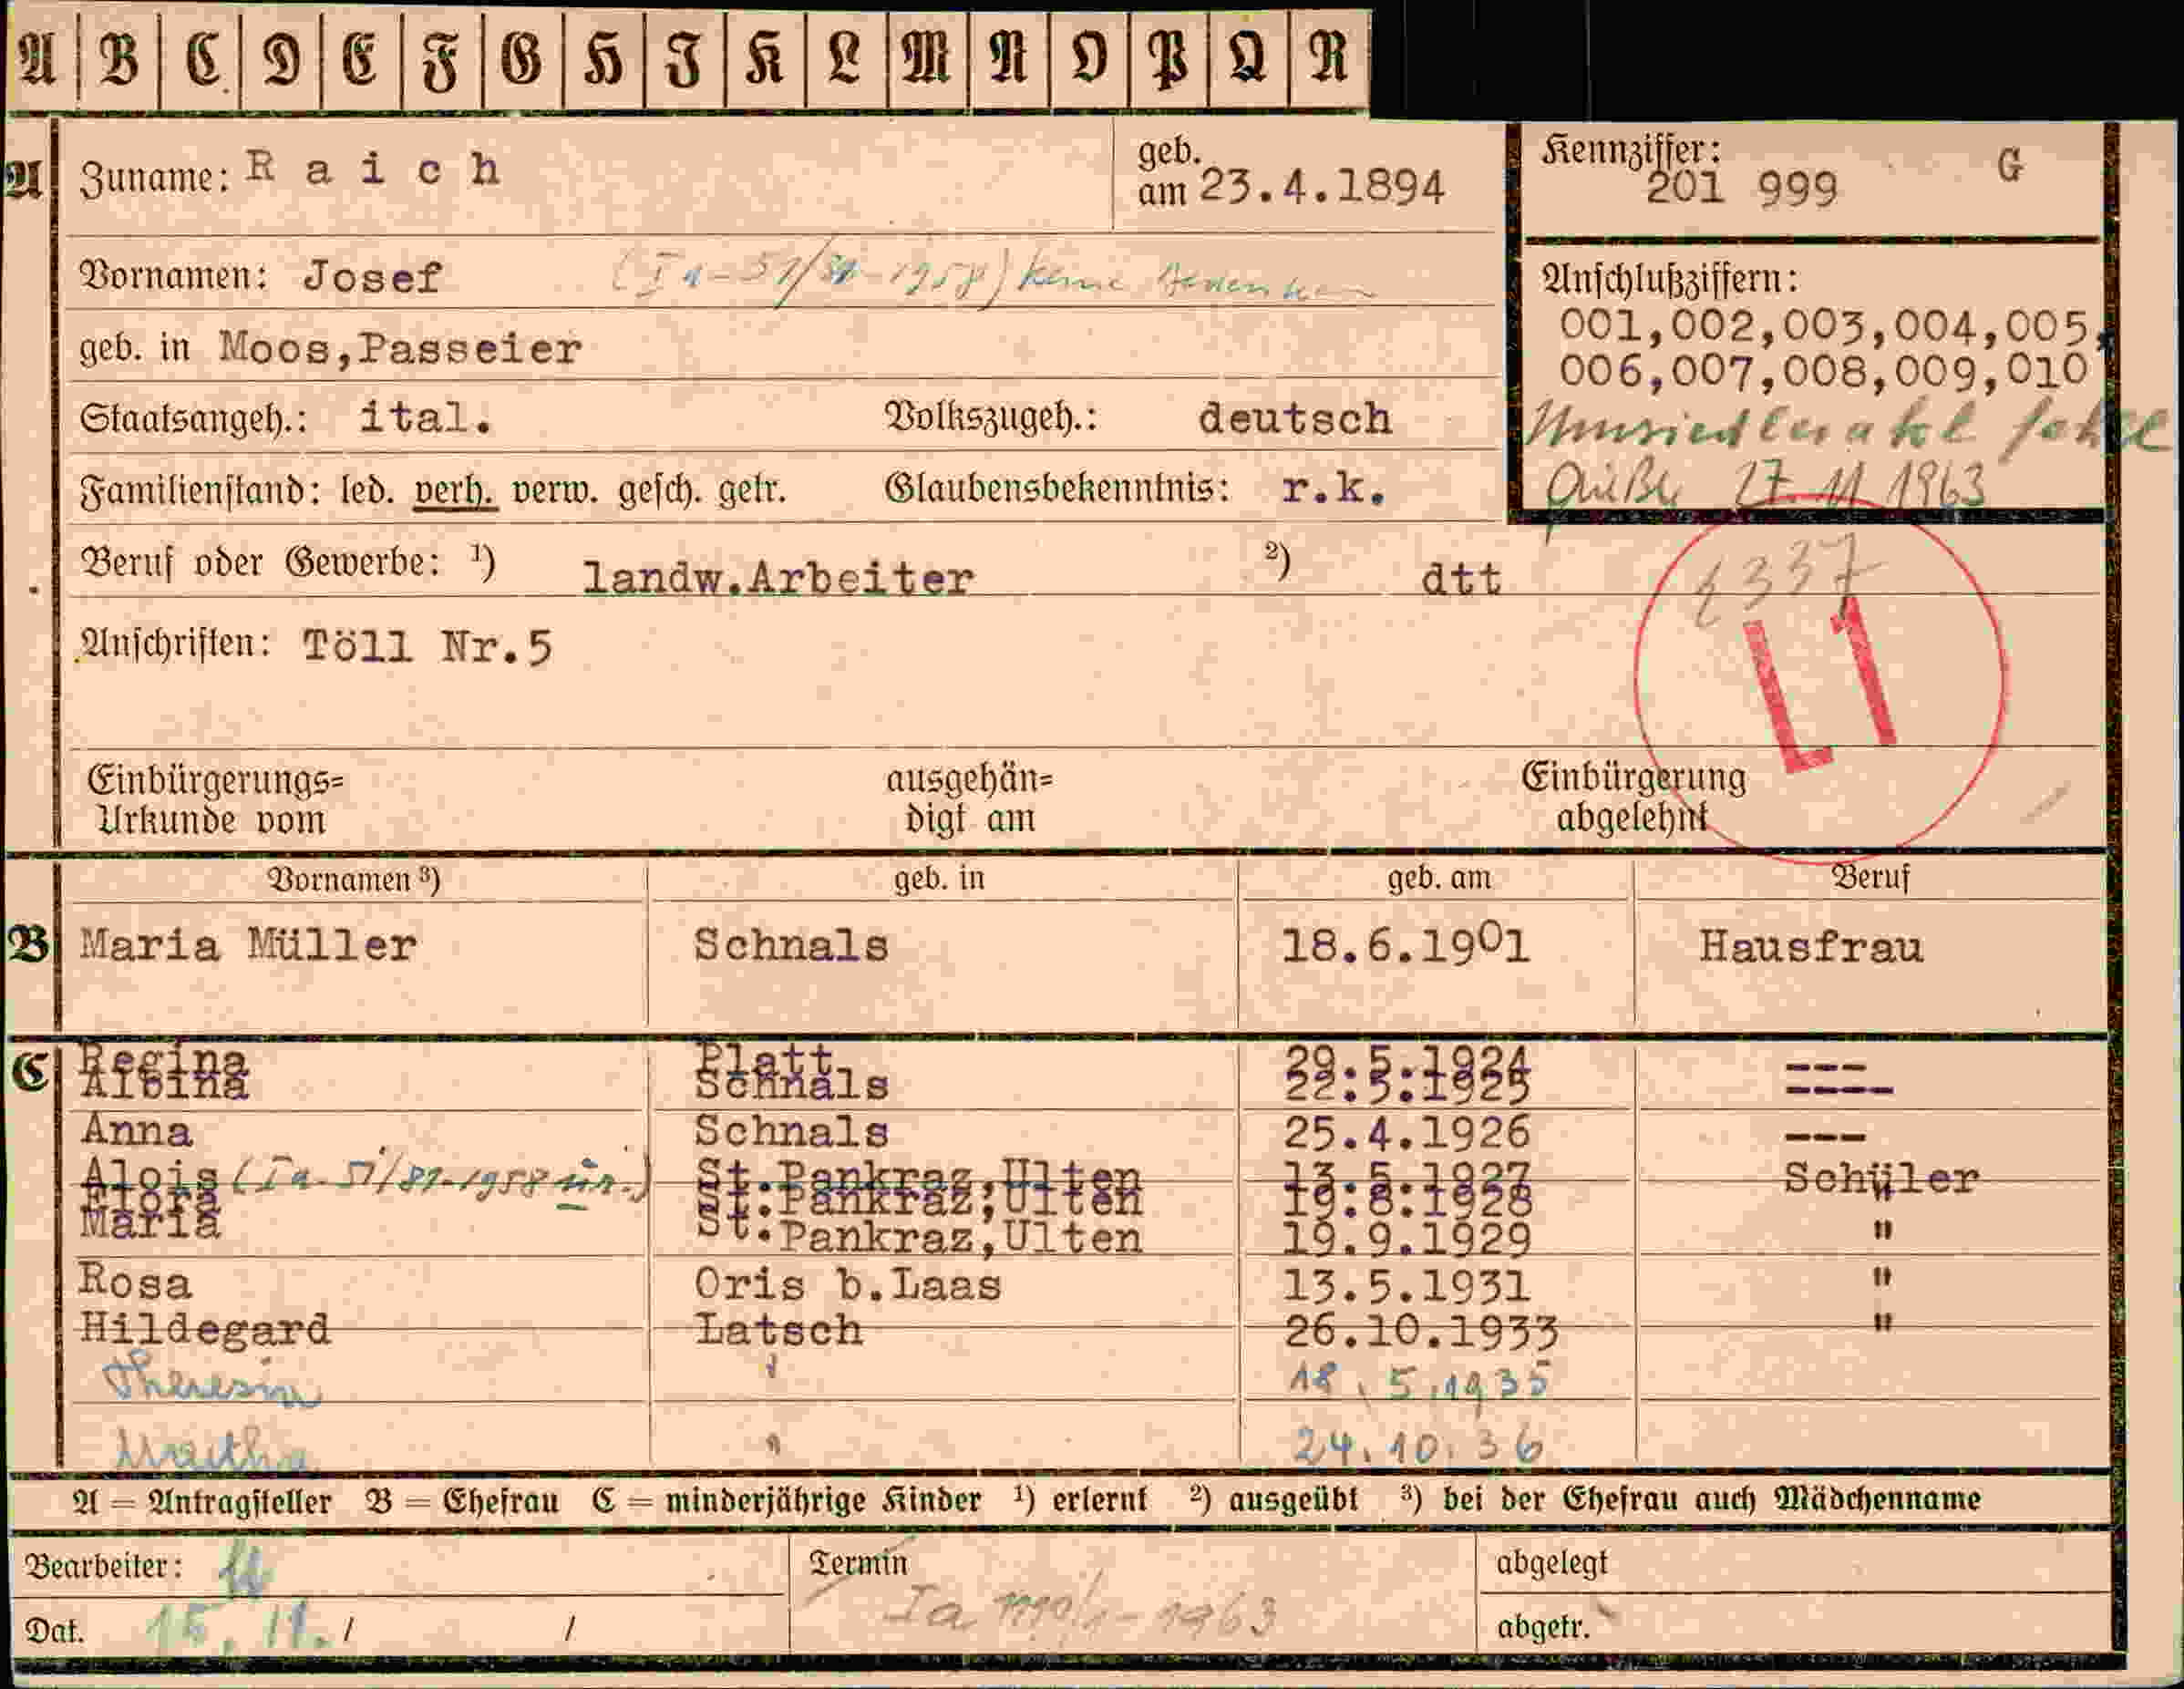 A B C D E F G H I K L M N O P Q R
A Zuname: Raich geb. am 23.4.1894
Kennziffer: 201 999 G
Vornamen: Josef (Ia-51/81-1958) keine Bedenken
geb. in Moos,Passeier
Anschlußziffern:
001,002,003,004,005,
006,007,008,009,010
Staatsangeh.: ital. Volkszugeh.: deutsch
Umsiedlerakt
27.11.1963
Familienstand: led. verh. verw. gesch. getr. Glaubensbekenntnis: r.k.
Beruf oder Gewerbe: 1) landw.Arbeiter 2) dtt
337
L1
Anschriften: Töll Nr.5
Einbürgerungs= ausgehän= Einbürgerung
Urkunde vom digt am abgelehnt
Vornamen 3) geb. in geb. am Beruf
B Maria Müller Schnals 18.6.1901 Hausfrau
C Regina Platt 29.5.1924 ---
Albina Schnals ----
Anna Schnals 25.4.1926 ---
Alois (Ia-51/81-1958 ) St.Pankraz,Ulten 13.5.1927 Schüler
Flora St.Pankraz,Ulten 19.8.1928 "
Maria St.Pankraz,Ulten 19.9.1929 "
Rosa Oris b.Laas 13.5.1931 "
Hildegard Latsch 26.10.1933 "
Theresia " 18.5.1935
Martha " 24.10.36
A = Antragsteller B = Ehefrau C = minderjährige Kinder 1) erlernt 2) ausgeübt 3) bei der Ehefrau auch Mädchenname
Bearbeiter: Termin abgelegt
Dat. 15.11./ / Ia 1963 abgetr.